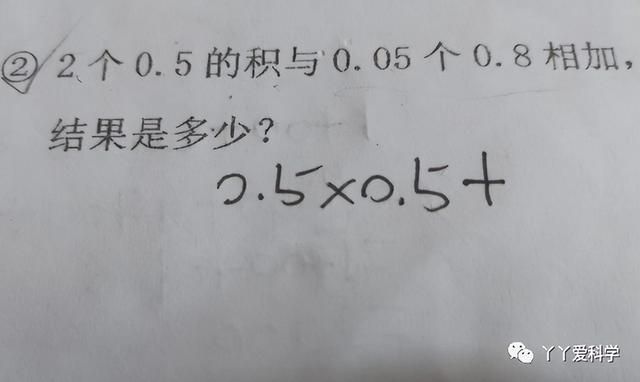 ② 2个0.5的积与0.05个0.8相加，
结果是多少？
0.5×0.5+
丫丫爱科学